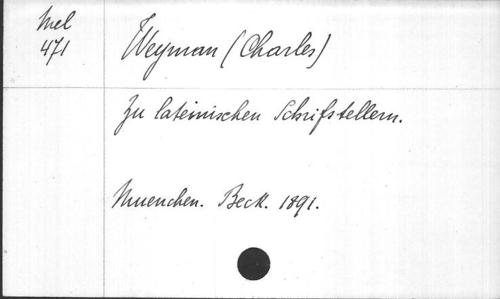 Mel
471
Weyman (Charles)
Zu lateinischen Schrifstellern.
Muenchen. Beck. 1891.